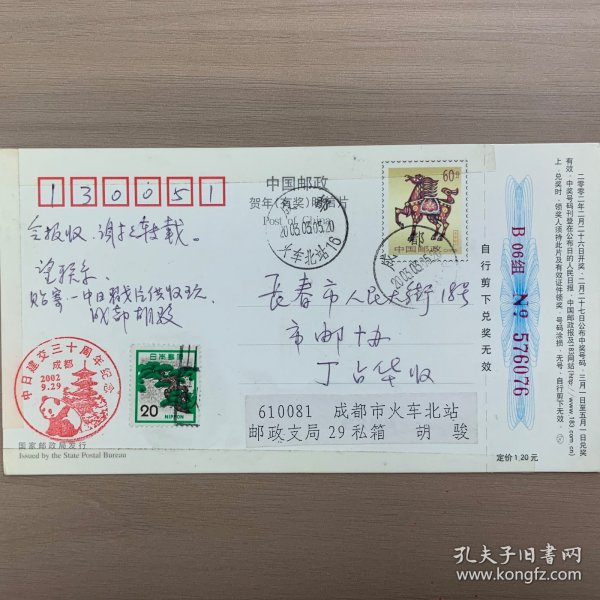 130051
中国邮政
贺年(有奖)明信片
Post of China
60分
中国邮政
2005.05.05.20
火车北站16
2005.05.05.20
会报收,谢
转载。
望联系
成都胡骏
长春市人民大街18号
市邮协
丁占华收
中日建交三十周年纪念
成都
2002
9.29
日本郵便
20
NIPPON
610081 成都市火车北站
邮政支局29私箱 胡 骏
国家邮政局发行
Issued by the State Postal Bureau
自行剪下兑奖无效
B 06组 No 576076
定价1.20元
二〇〇二年二月二十六日开奖,二月二十七日公布中奖号码,三月一日至五月一日兑奖
有效。中奖号码刊登在公布日的人民日报、中国邮政报及183网站(http://www.183.com.cn)
上。兑奖时,领奖人须持此片及有效证件领奖。号码涂损、无号、自行剪下无效。
孔夫子旧书网
www.kongfz.com